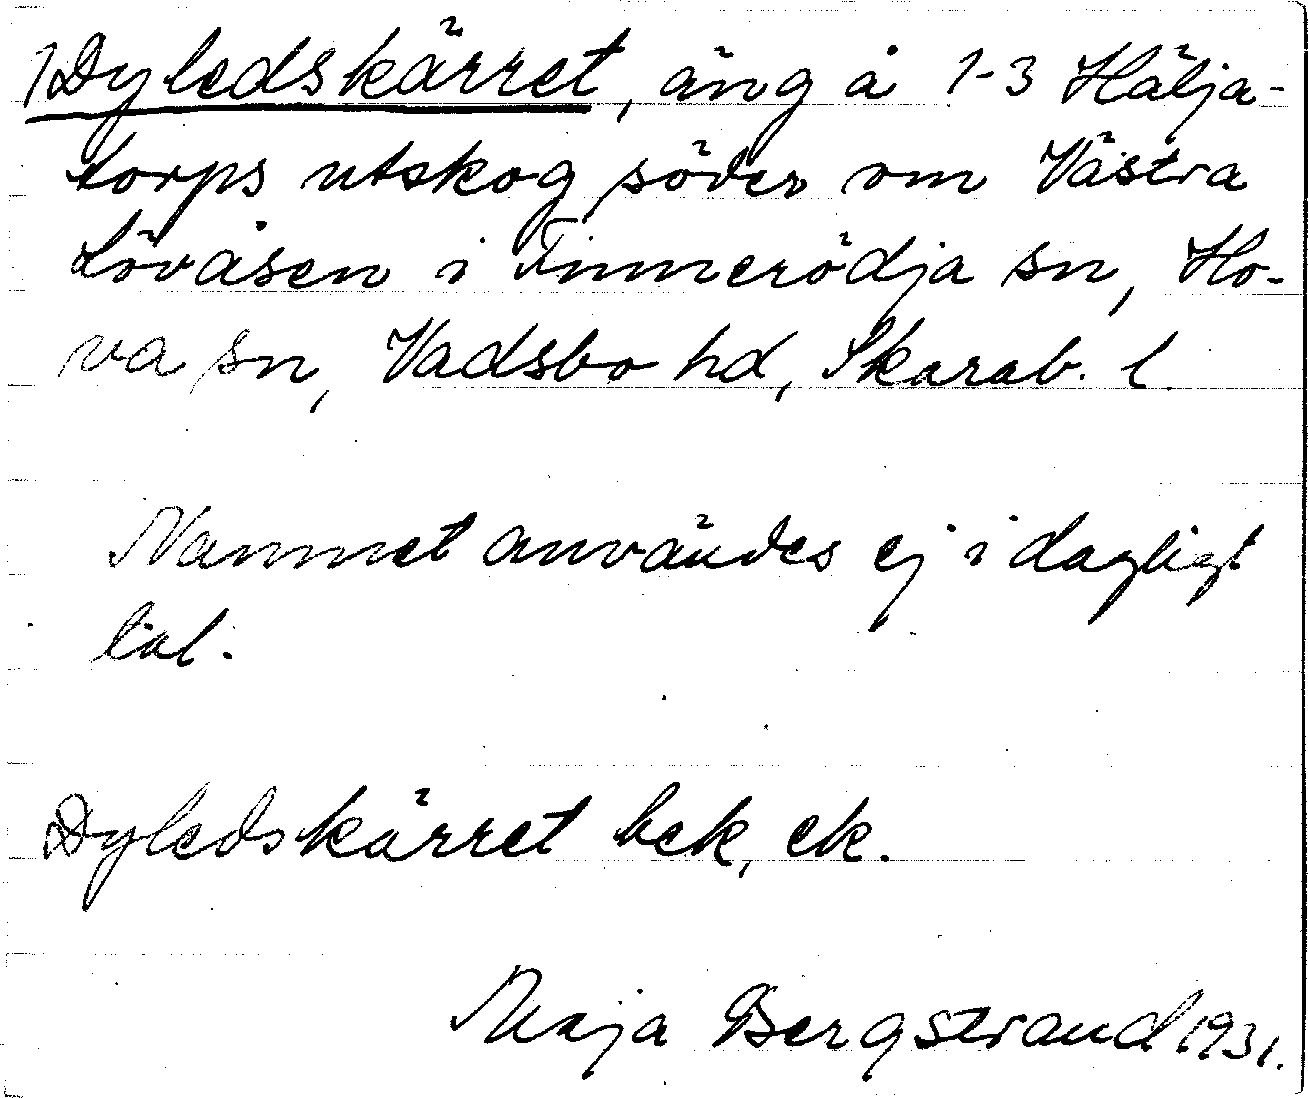 1Dyledskärret, äng å 1-3 Hälja-
torps utskog söder om Västra
Lövåsen i Finnerödja sn, Ho-
va sn, Vadsbo hd, Skarab. l.
Namnet användes ej i dagligt
tal.
Dyledskärret bek, ek.
Maja Bergstrand 1931.